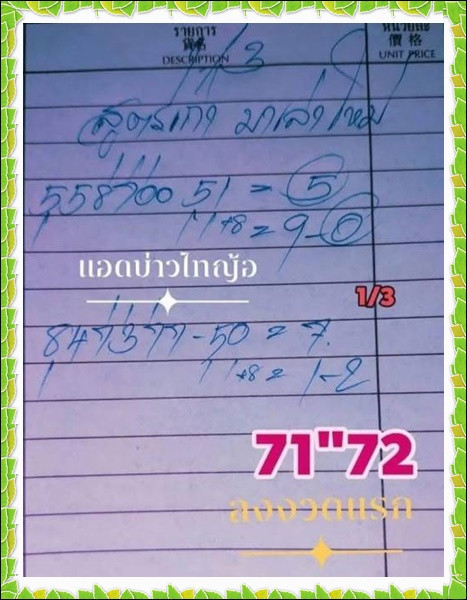 รายการ
貨名
DESCRIPTION
หน่วยละ
價格
UNIT PRICE
1/3
สูตรเก่า มาเล่าใหม่
558700 51 = 5
+8 = 9-0
แอดบ่าวไทญ้อ
1/3
847377-50 = 7.
+8 = 1-2
71"72
ลงงวดแรก